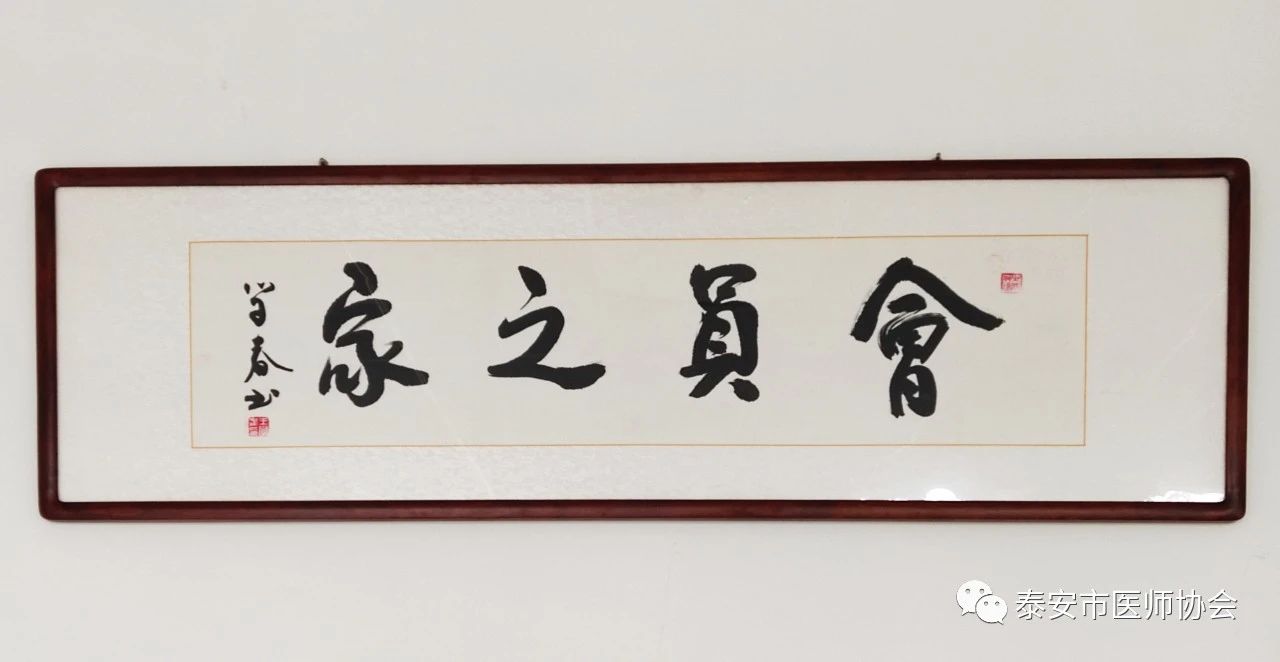 會員之家
春书
泰安市医师协会